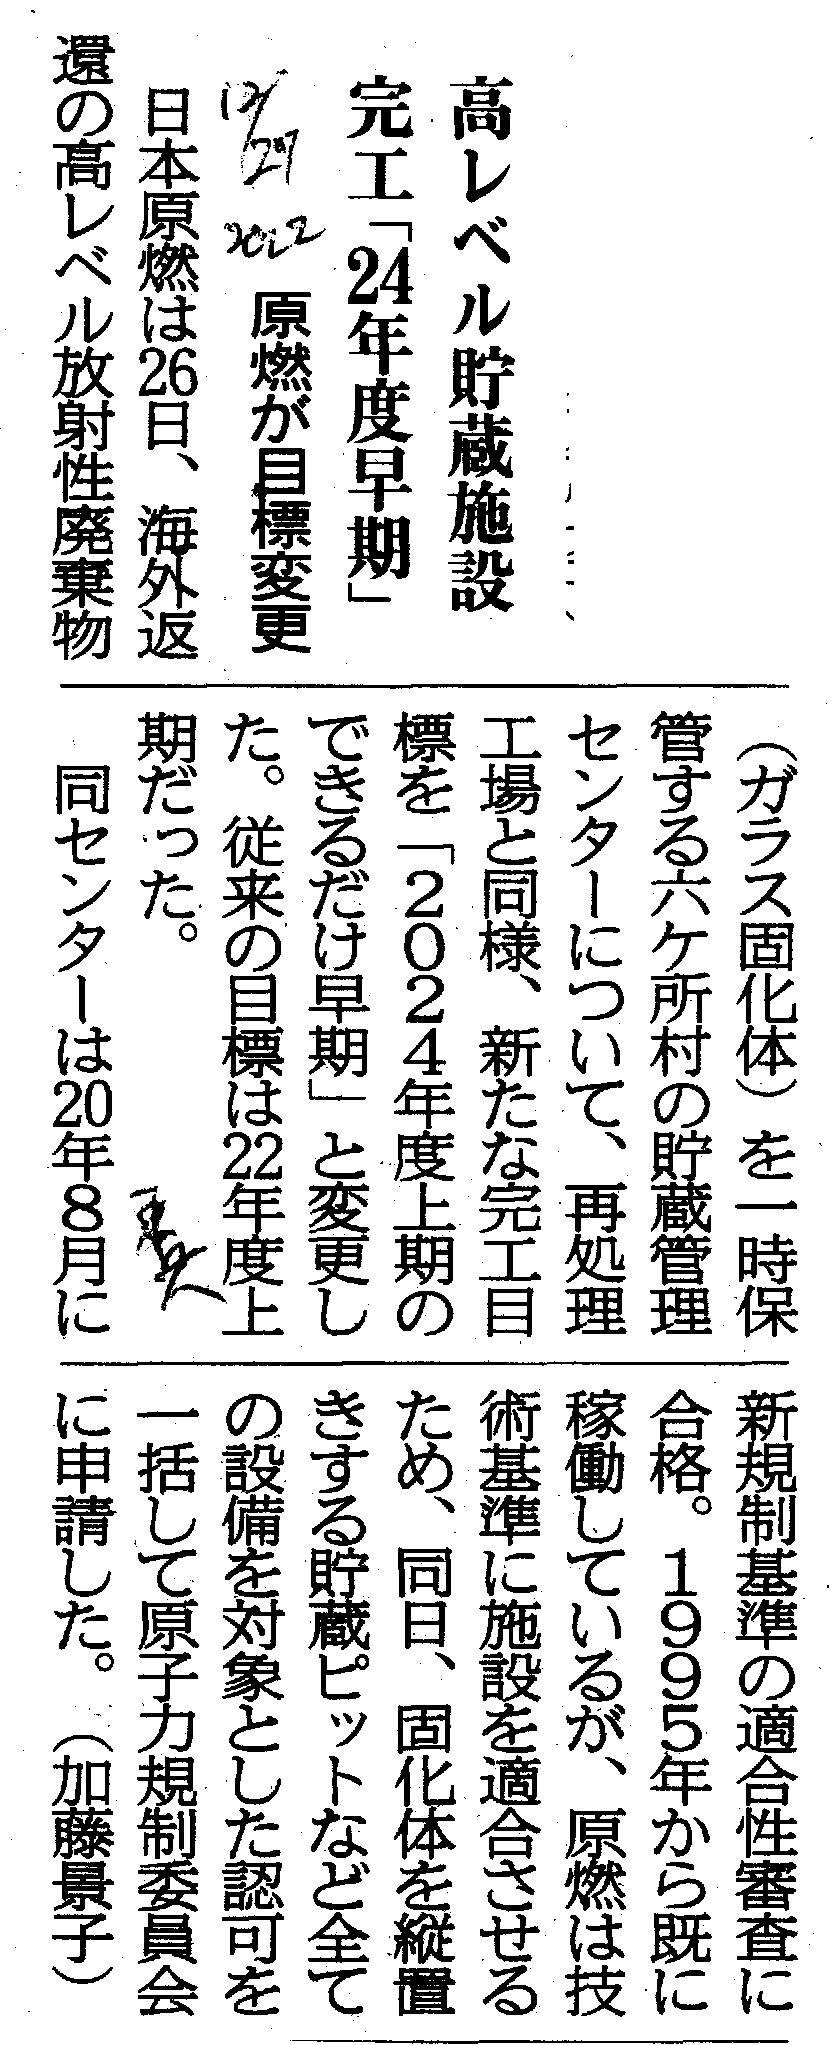 高レベル貯蔵施設
完工「24年度早期」
12/27
2022
原燃が目標変更
日本原燃は26日、海外返
還の高レベル放射性廃棄物
（ガラス固化体）を一時保
管する六ケ所村の貯蔵管理
センターについて、再処理
工場と同様、新たな完工目
標を「２０２４年度上期の
できるだけ早期」と変更し
た。従来の目標は22年度上
期だった。
同センターは20年８月に
新規制基準の適合性審査に
合格。１９９５年から既に
稼働しているが、原燃は技
術基準に施設を適合させる
ため、同日、固化体を縦置
きする貯蔵ピットなど全て
の設備を対象とした認可を
一括して原子力規制委員会
に申請した。（加藤景子）